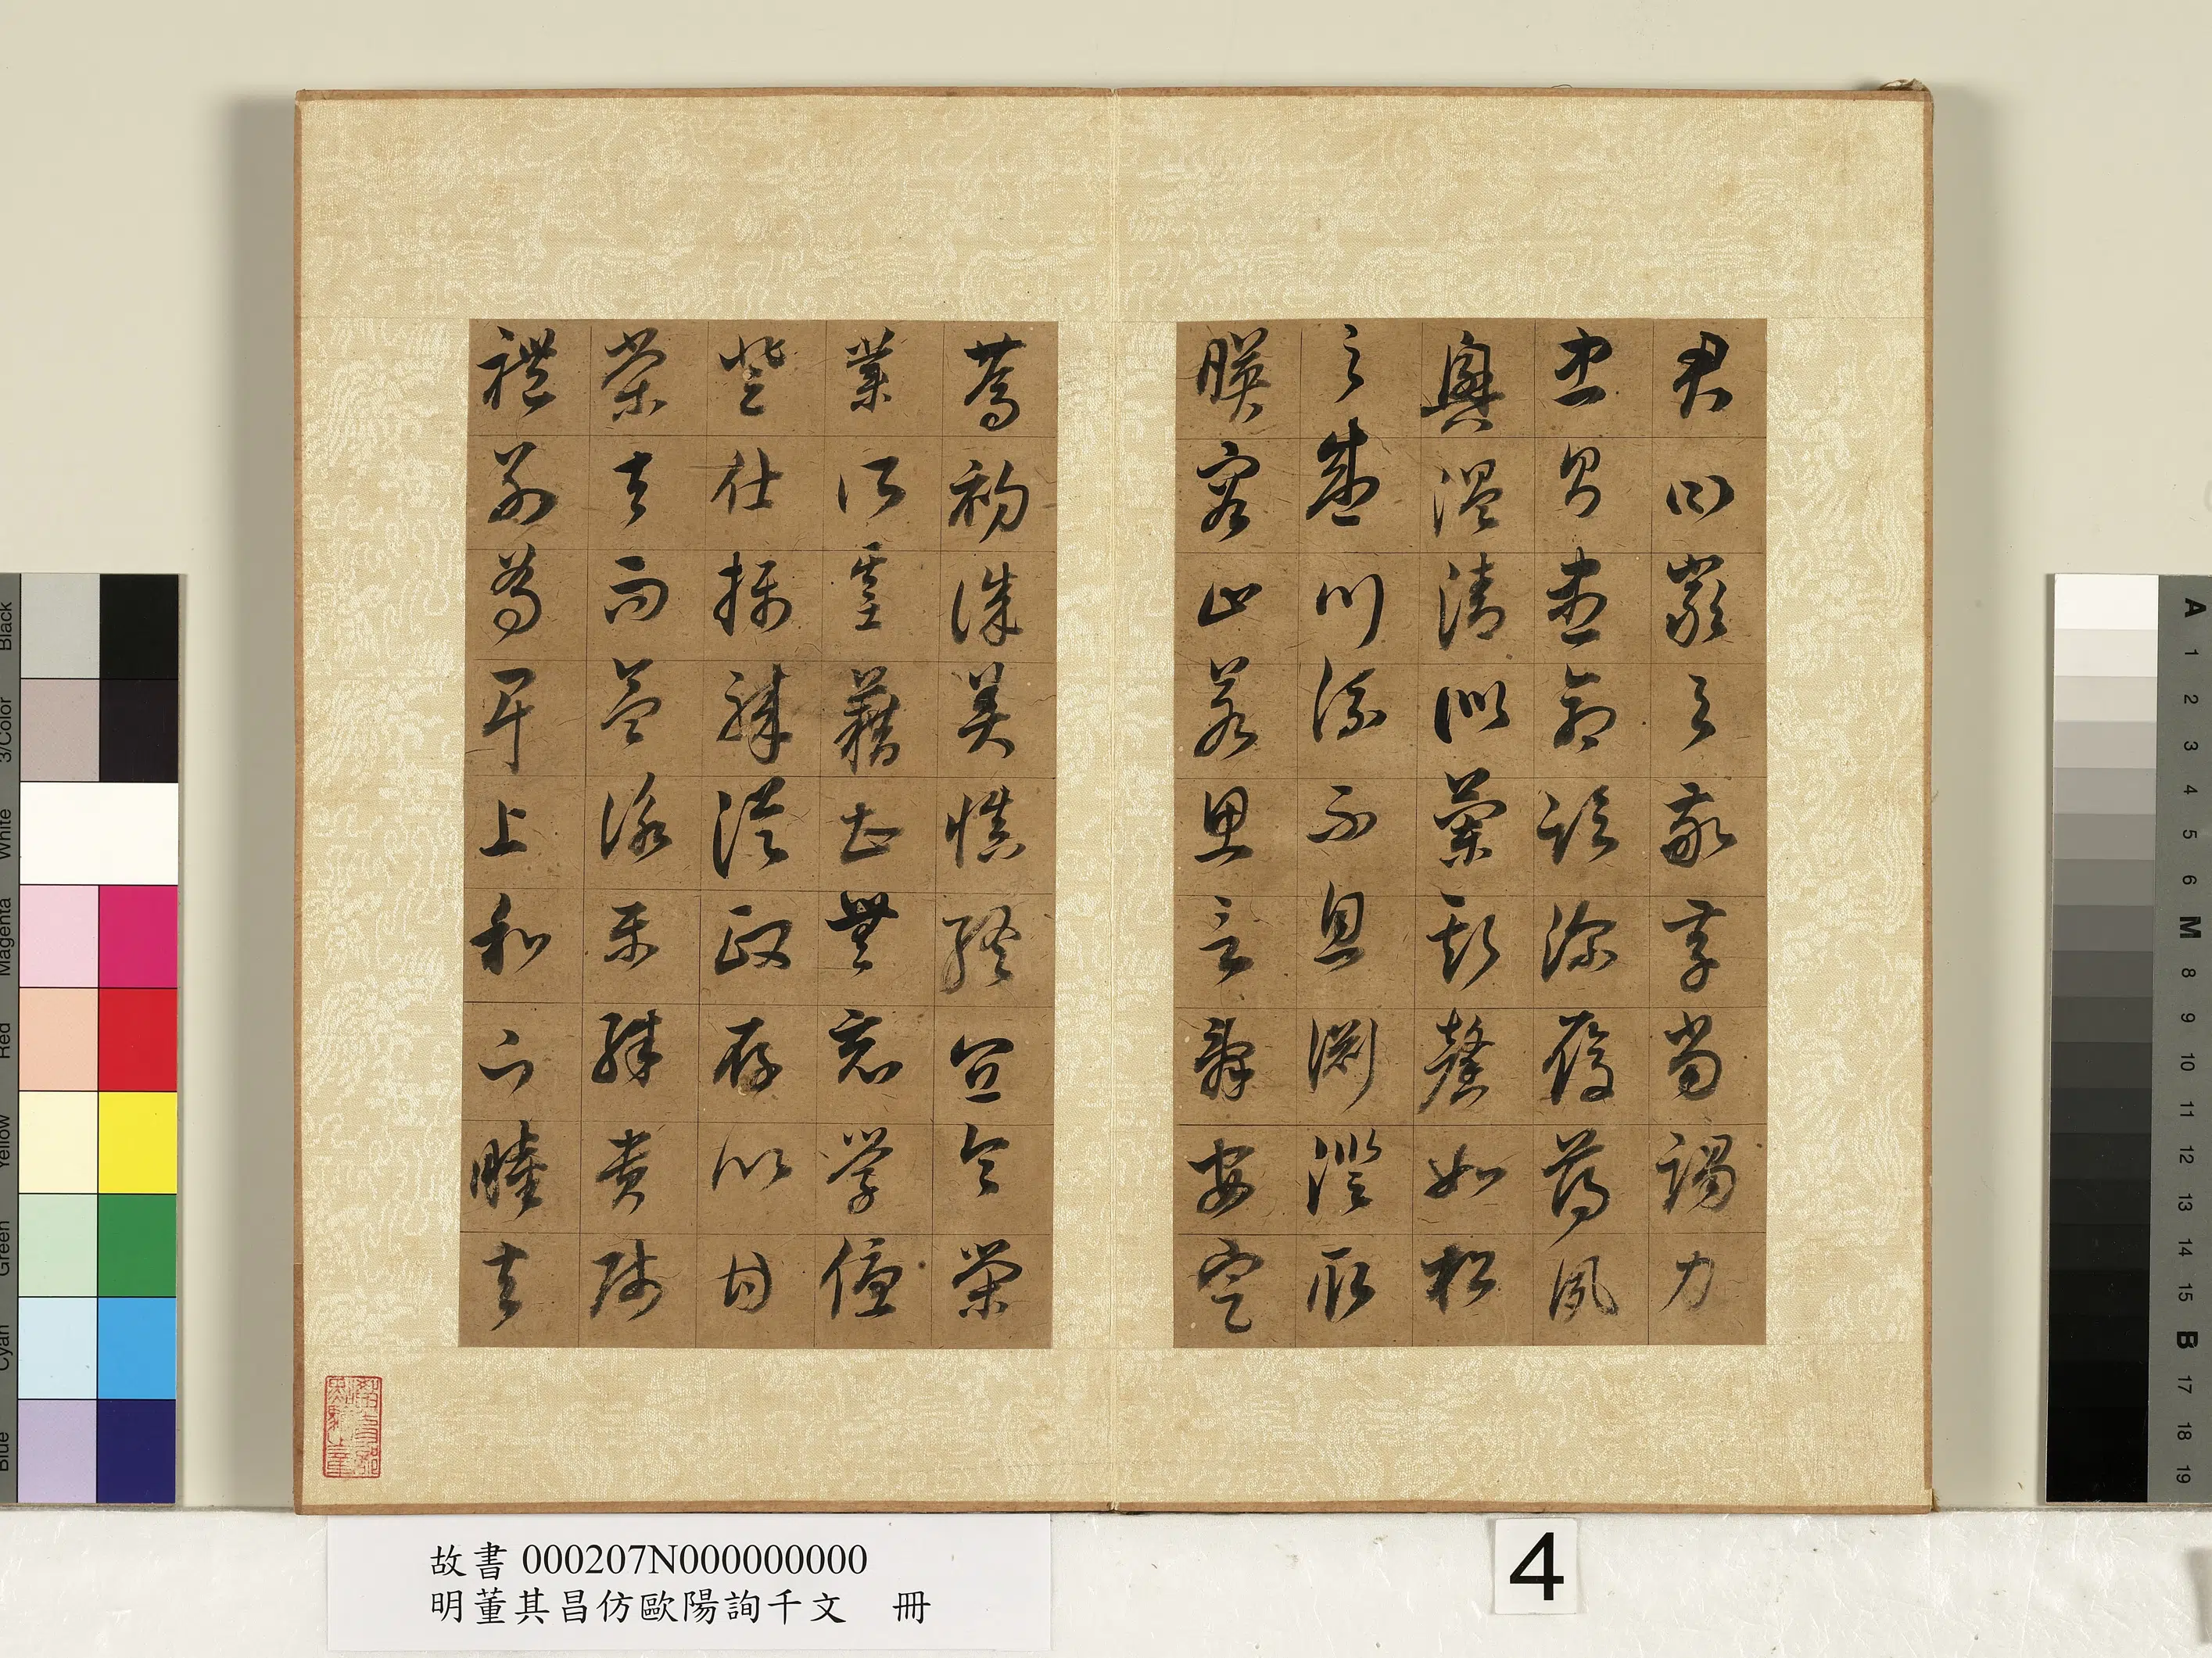 君曰嚴與敬孝當竭力
忠則盡命臨深履薄夙
興溫清似蘭斯馨如松
之盛川流不息淵澄取
暎容止若思言辭安定
篤初誠美慎終宜令榮
業所基藉甚無竟學優
登仕攝職從政存以甘
棠去而益詠樂殊貴賤
禮別尊卑上和下睦夫
故書 000207N000000000
明董其昌仿歐陽詢千文 冊
4
Black
3/Color
White
Magenta
Red
Yellow
Green
Cyan
Blue
A
1
2
3
4
5
6
M
8
9
10
11
12
13
14
15
B
17
18
19